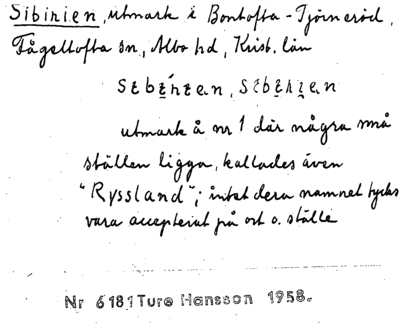 Sibirien, utmark i Bontofta-Tjörneröd,
Fågeltofta sn, Albo hd, Krist. län
utmark å nr 1 där några små
ställen ligga, kallades även
"Ryssland"; intet dera namnet tycks
vara accepterat på ort o. ställe
Nr 6181 Ture Hansson 1958.